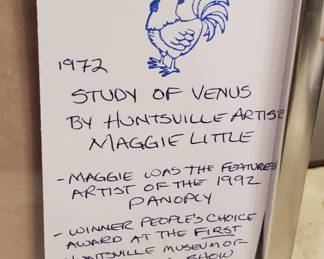 1972
STUDY OF VENUS
BY HUNTSVILLE ARTIST
MAGGIE LITTLE
- MAGGIE WAS THE FEATURED
ARTIST OF THE 1992
PANOPLY
- WINNER PEOPLE'S CHOICE
AWARD AT THE FIRST
HUNTSVILLE MUSEUM OF
SHOW